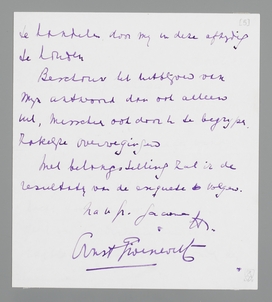 te handelen door mij in deze afzijdig
te houden
Beschouw het uitblijven van
mijn antwoord dan ook alleen
uit, misschien ook door U te begrijpen,
zakelijke overwegingen
Met belangstelling zal ik de
resultaten van de enquete volgen.
Ernst Groenevelt